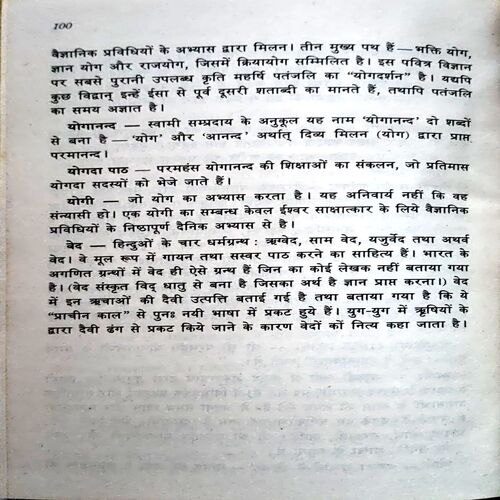 100
वैज्ञानिक प्रविधियों के अभ्यास द्वारा मिलन। तीन मुख्य पथ हैं — भक्ति योग,
ज्ञान योग और राजयोग, जिसमें क्रियायोग सम्मिलित है। इस पवित्र विज्ञान
पर सबसे पुरानी उपलब्ध कृति महर्षि पतंजलि का “योगदर्शन” है। यद्यपि
कुछ विद्वान् इन्हें ईसा से पूर्व दूसरी शताब्दी का मानते हैं, तथापि पतंजलि
का समय अज्ञात है।
योगानन्द — स्वामी सम्प्रदाय के अनुकूल यह नाम ‘योगानन्द’ दो शब्दों
से बना है — ‘योग’ और ‘आनन्द’ अर्थात् दिव्य मिलन (योग) द्वारा प्राप्त
परमानन्द।
योगदा पाठ — परमहंस योगानन्द की शिक्षाओं का संकलन, जो प्रतिमास
योगदा सदस्यों को भेजे जाते हैं।
योगी — जो योग का अभ्यास करता है। यह अनिवार्य नहीं कि वह
संन्यासी हो। एक योगी का सम्बन्ध केवल ईश्वर साक्षात्कार के लिये वैज्ञानिक
प्रविधियों के निष्ठापूर्ण दैनिक अभ्यास से है।
वेद — हिन्दुओं के चार धर्मग्रन्थ : ऋग्वेद, साम वेद, यजुर्वेद तथा अथर्व
वेद। वे मूल रूप में गायन तथा सस्वर पाठ करने का साहित्य हैं। भारत के
अगणित ग्रन्थों में वेद ही ऐसे ग्रन्थ हैं जिन का कोई लेखक नहीं बताया गया
है। (वेद संस्कृत विद् धातु से बना है जिसका अर्थ है ज्ञान प्राप्त करना।) वेद
में इन ऋचाओं की दैवी उत्पत्ति बताई गई है तथा बताया गया है कि ये
“प्राचीन काल” से पुनः नयी भाषा में प्रकट हुये हैं। युग-युग में ऋषियों के
द्वारा दैवी ढंग से प्रकट किये जाने के कारण वेदों को नित्य कहा जाता है।